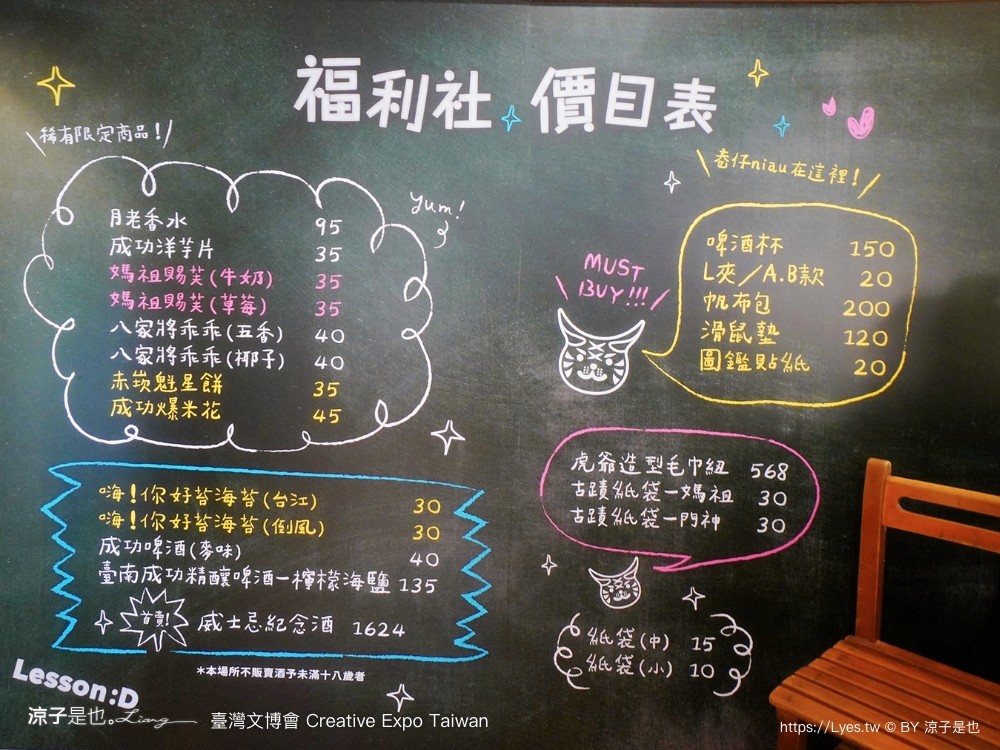 福利社 價目表
稀有限定商品!
yum!
月老香水 95
成功洋芋片 35
媽祖賜筊(牛奶) 35
媽祖賜筊(草莓) 35
八家將乖乖(五香) 40
八家將乖乖(椰子) 40
赤崁魁星餅 35
成功爆米花 45
嗨!你好苔海苔(台江) 30
嗨!你好苔海苔(倒風) 30
成功啤酒(麥味) 40
臺南成功精釀啤酒-檸檬海鹽 135
首賣! 威士忌紀念酒 1624
*本場所不販賣酒予未滿十八歲者
仔niau在這裡!
MUST
BUY!!!
啤酒杯 150
L夾/A.B款 20
帆布包 200
滑鼠墊 120
圖鑑貼紙 20
虎爺造型毛巾紐 568
古蹟紙袋-媽祖 30
古蹟紙袋-門神 30
紙袋(中) 15
紙袋(小) 10
Lesson:D
涼子是也。Liang
臺灣文博會 Creative Expo Taiwan
https://Lyes.tw © BY 涼子是也